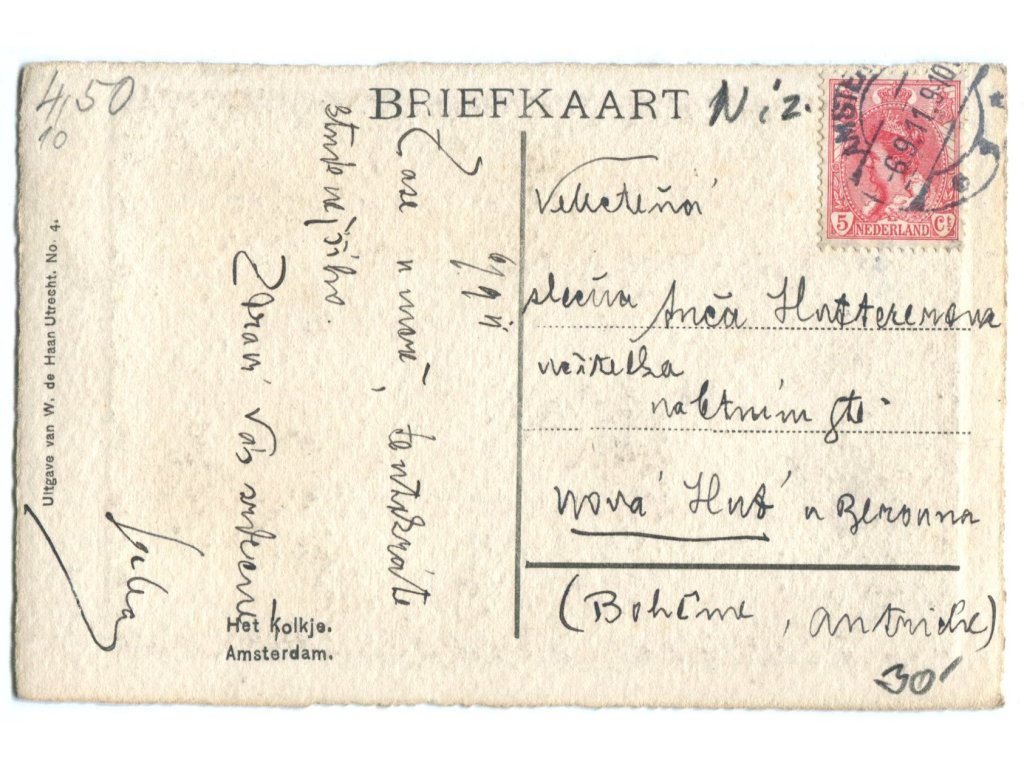 4,50
10
BRIEFKAART Niz.
AMSTE
-6.9.11.9-10
5 NEDERLAND Ct
Velectěná
slečna Anča
učitelka
na letním
Nová Huť u Berouna
(Bohême, Autriche)
30
6/9 11
Zase u moře, tentokráte
Zdraví Vás srdečně
Het Kolkje.
Amsterdam.
Uitgave van W. de Haan Utrecht. No. 4.